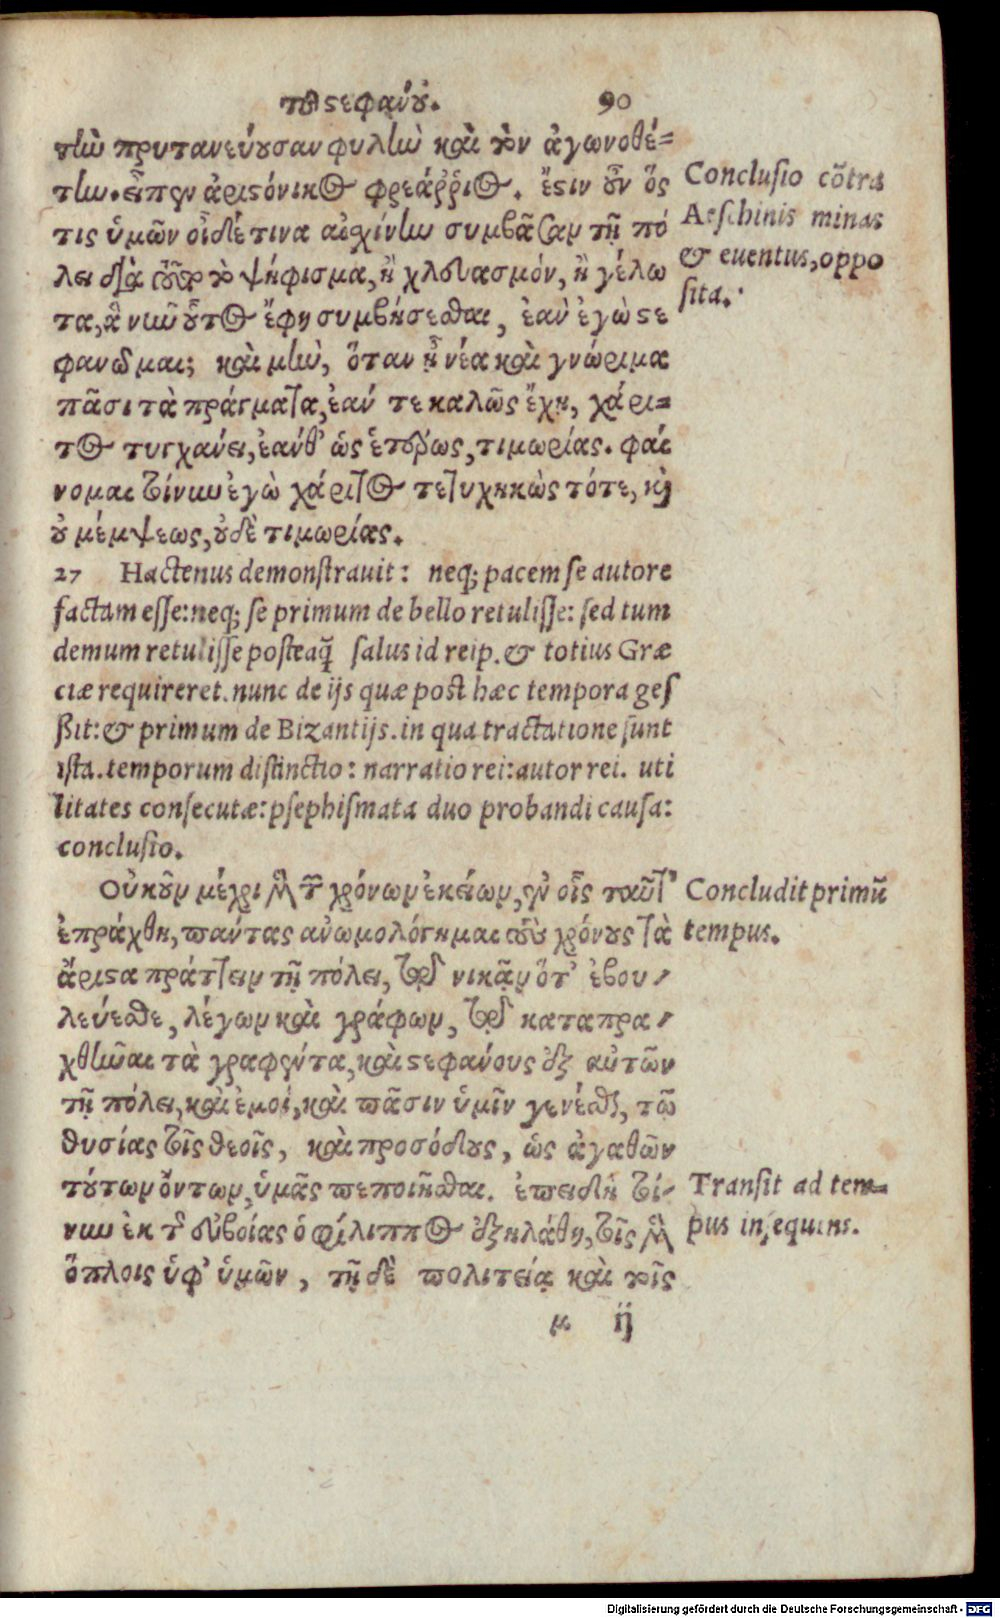 τοῦ στεφάνου. 90
τὴν πρυτανεύουσαν φυλὴν καὶ τὸν ἀγωνοθέ=
την. εἶπεν ἀριστόνικος φρεάῤῥιος. ἔστιν οὖν ὅς
τις ὑμῶν οἶδέ τινα αἰσχύνην συμβᾶσαν τῇ πό
λει διὰ τοῦτο τὸ ψήφισμα, ἢ χλευασμόν, ἢ γέλω
τα, ἃ νῦν οὗτος ἔφη συμβήσεσθαι, ἐὰν ἐγὼ στε
φανῶμαι; καὶ μὴν, ὅταν ᾖ νέα καὶ γνώριμα
πᾶσι τὰ πράγματα, ἐάν τε καλῶς ἔχῃ, χάρι=
τος τυγχάνει, ἐάνθ' ὡς ἑτέρως, τιμωρίας. φαί
νομαι τοίνυν ἐγὼ χάριτος τετυχηκὼς τότε, καὶ
οὐ μέμψεως, οὐδὲ τιμωρίας.
Conclusio cõtra
Aeschinis minas
& euentus, oppo
sita.
27 Hactenus demonstrauit: neq; pacem se autore
factam esse: neq; se primum de bello retulisse: sed tum
demum retulisse posteaq̃ salus id reip. & totius Græ
ciæ requireret. nunc de ijs quæ post hæc tempora ges
sit: & primum de Bizantijs. in qua tractatione sunt
ista. temporum distinctio: narratio rei: autor rei. uti
litates consecutæ: psephismata duo probandi causa:
conclusio.
Οὐκοῦν μέχρι μὲν τῶν χρόνων ἐκείνων, ἐν οἷς ταῦτ'
ἐπράχθη, πάντας ἀνωμολόγημαι τοὺς χρόνους τὰ
ἄριστα πράττειν τῇ πόλει, τῷ νικᾷν ὅτ' ἐβου
λεύεσθε, λέγων καὶ γράφων, τῷ καταπρα
χθῆναι τὰ γραφέντα, καὶ στεφάνους ἐξ αὐτῶν
τῇ πόλει, καὶ ἐμοί, καὶ πᾶσιν ὑμῖν γενέσθαι, τῷ
θυσίας τοῖς θεοῖς, καὶ προσόδους, ὡς ἀγαθῶν
τούτων ὄντων, ὑμᾶς πεποιῆσθαι. ἐπειδὴ τοί
νυν ἐκ τῆς εὐβοίας ὁ φίλιππος ἐξηλάθη, τοῖς μὲν
ὅπλοις ὑφ' ὑμῶν, τῇ δὲ πολιτείᾳ καὶ τοῖς
Concludit primũ
tempus.
Transit ad tem=
pus insequens.
μ ij
Digitalisierung gefördert durch die Deutsche Forschungsgemeinschaft - DFG